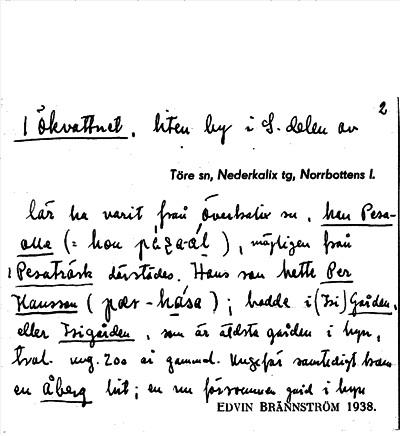 2
I Ökvattnet, liten by i S. delen av
Töre sn, Nederkalix tg, Norrbottens l.
lär ha varit från Överkalix sn, han Pesa-
olla (= hon), möjligen från
Pesaträsk därstädes. Hans son hette Per
Hansson (pær - hása); bodde i (Isi)Gården,
eller Isigården, som är äldsta gården i byn,
trol. ung. 200 år gammal. Ungefär samtidigt kom
en Åberg hit; en nu försvunnen gård i byn
EDVIN BRÄNNSTRÖM 1938.